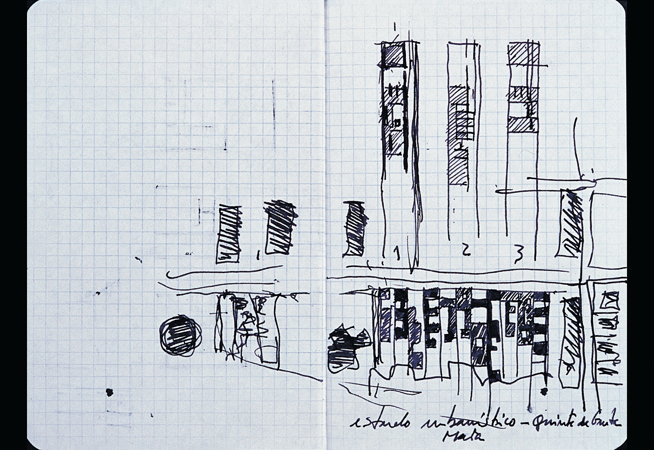 1 2 3
estudo urbanístico – Quinta da Gruta
Maia